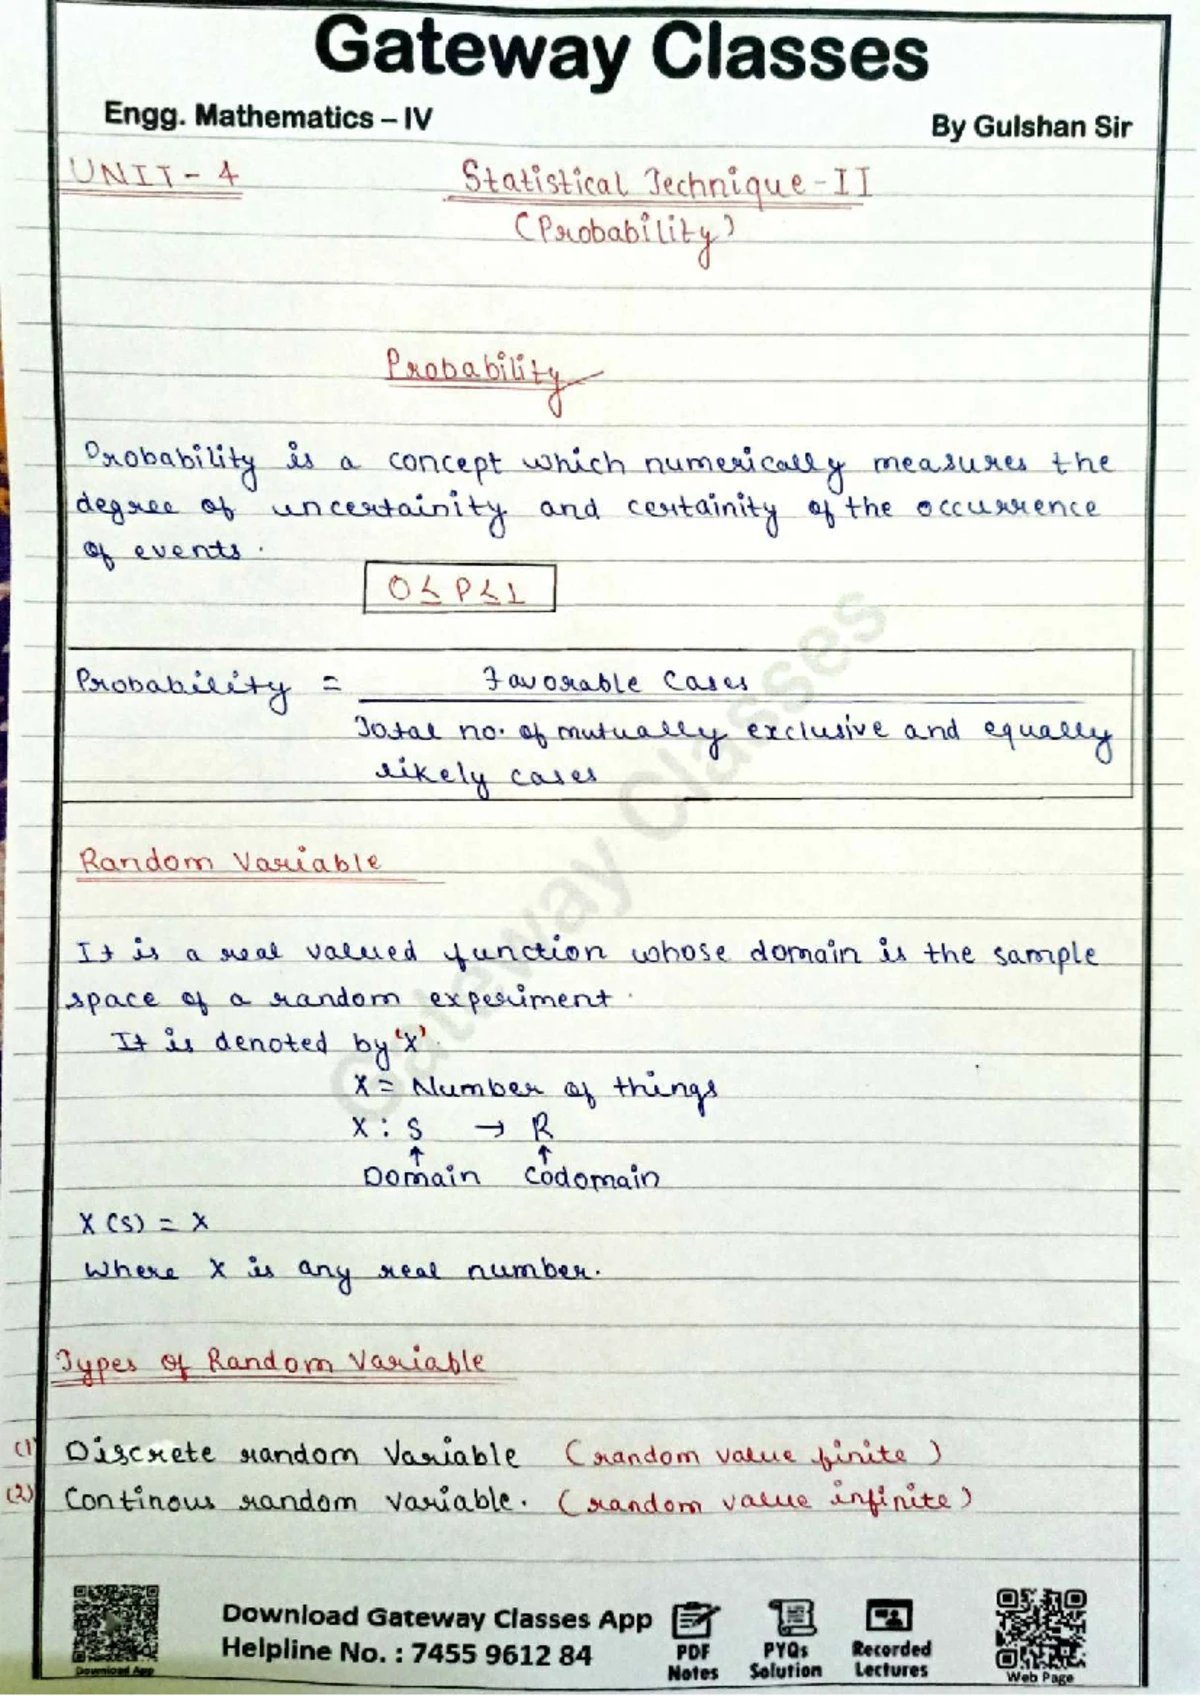 Gateway Classes
Engg. Mathematics – IV
By Gulshan Sir
UNIT - 4
Statistical Technique - II
(Probability)
Probability
Probability is a concept which numerically measures the
degree of uncertainity and certainity of the occurrence
of events.
0 ≤ P ≤ 1
Probability = Favorable Cases
Total no. of mutually exclusive and equally
likely cases
Random Variable
It is a real valued function whose domain is the sample
space of a random experiment.
It is denoted by 'X'.
X = Number of things
X : S → R
↑ ↑
Domain Codomain
X (S) = X
where X is any real number.
Types of Random Variable
(1) Discrete random Variable (random value finite)
(2) Continous random variable. (random value infinite)
Gateway Classes
Download App
Download Gateway Classes App
Helpline No. : 7455 9612 84
PDF
Notes
PYQs
Solution
Recorded
Lectures
Web Page